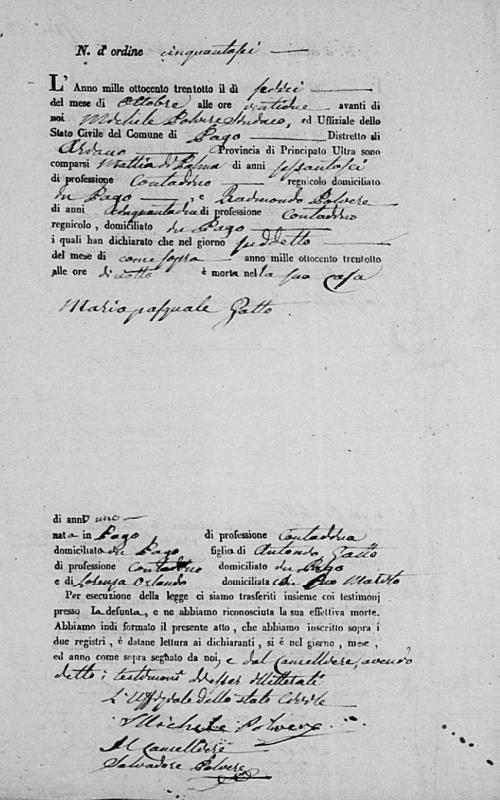 N. d' ordine cinquantasei
L' Anno mille ottocento trentotto il dì sedici
del mese di Ottobre alle ore ventidue avanti di
noi Michele Polvere Sindaco, ed Uffiziale dello
Stato Civile del Comune di Pago Distretto di
Ariano Provincia di Principato Ultra sono
comparsi Mattia di Palma di anni sessantasei
di professione Contadino regnicolo domiciliato
in Pago, e Raimondo Polvere
di anni cinquanta di professione Contadino
regnicolo, domiciliato in Pago
i quali han dichiarato che nel giorno suddetto
del mese di come sopra anno mille ottocento trentotto
alle ore diciotto è morta nella sua casa
Maria pasquale Gatto
di anni uno
nata in Pago di professione Contadina
domiciliata in Pago figlia di Antonio Gatto
di professione Contadino domiciliato in Pago
e di Lorenza Orlando domiciliata col suo Marito
Per esecuzione della legge ci siamo trasferiti insieme coi testimonj
presso La defunta, e ne abbiamo riconosciuta la sua effettiva morte.
Abbiamo indi formato il presente atto, che abbiamo inscritto sopra i
due registri, è datane lettura ai dichiaranti, si é nel giorno, mese,
ed anno come sopra segnato da noi, e dal Cancelliere, avendo
detto i testimoni di esser illitterati
L'Uffiziale dello stato Civile
Michele Polvere
Il Cancelliere
Salvadore Polvere